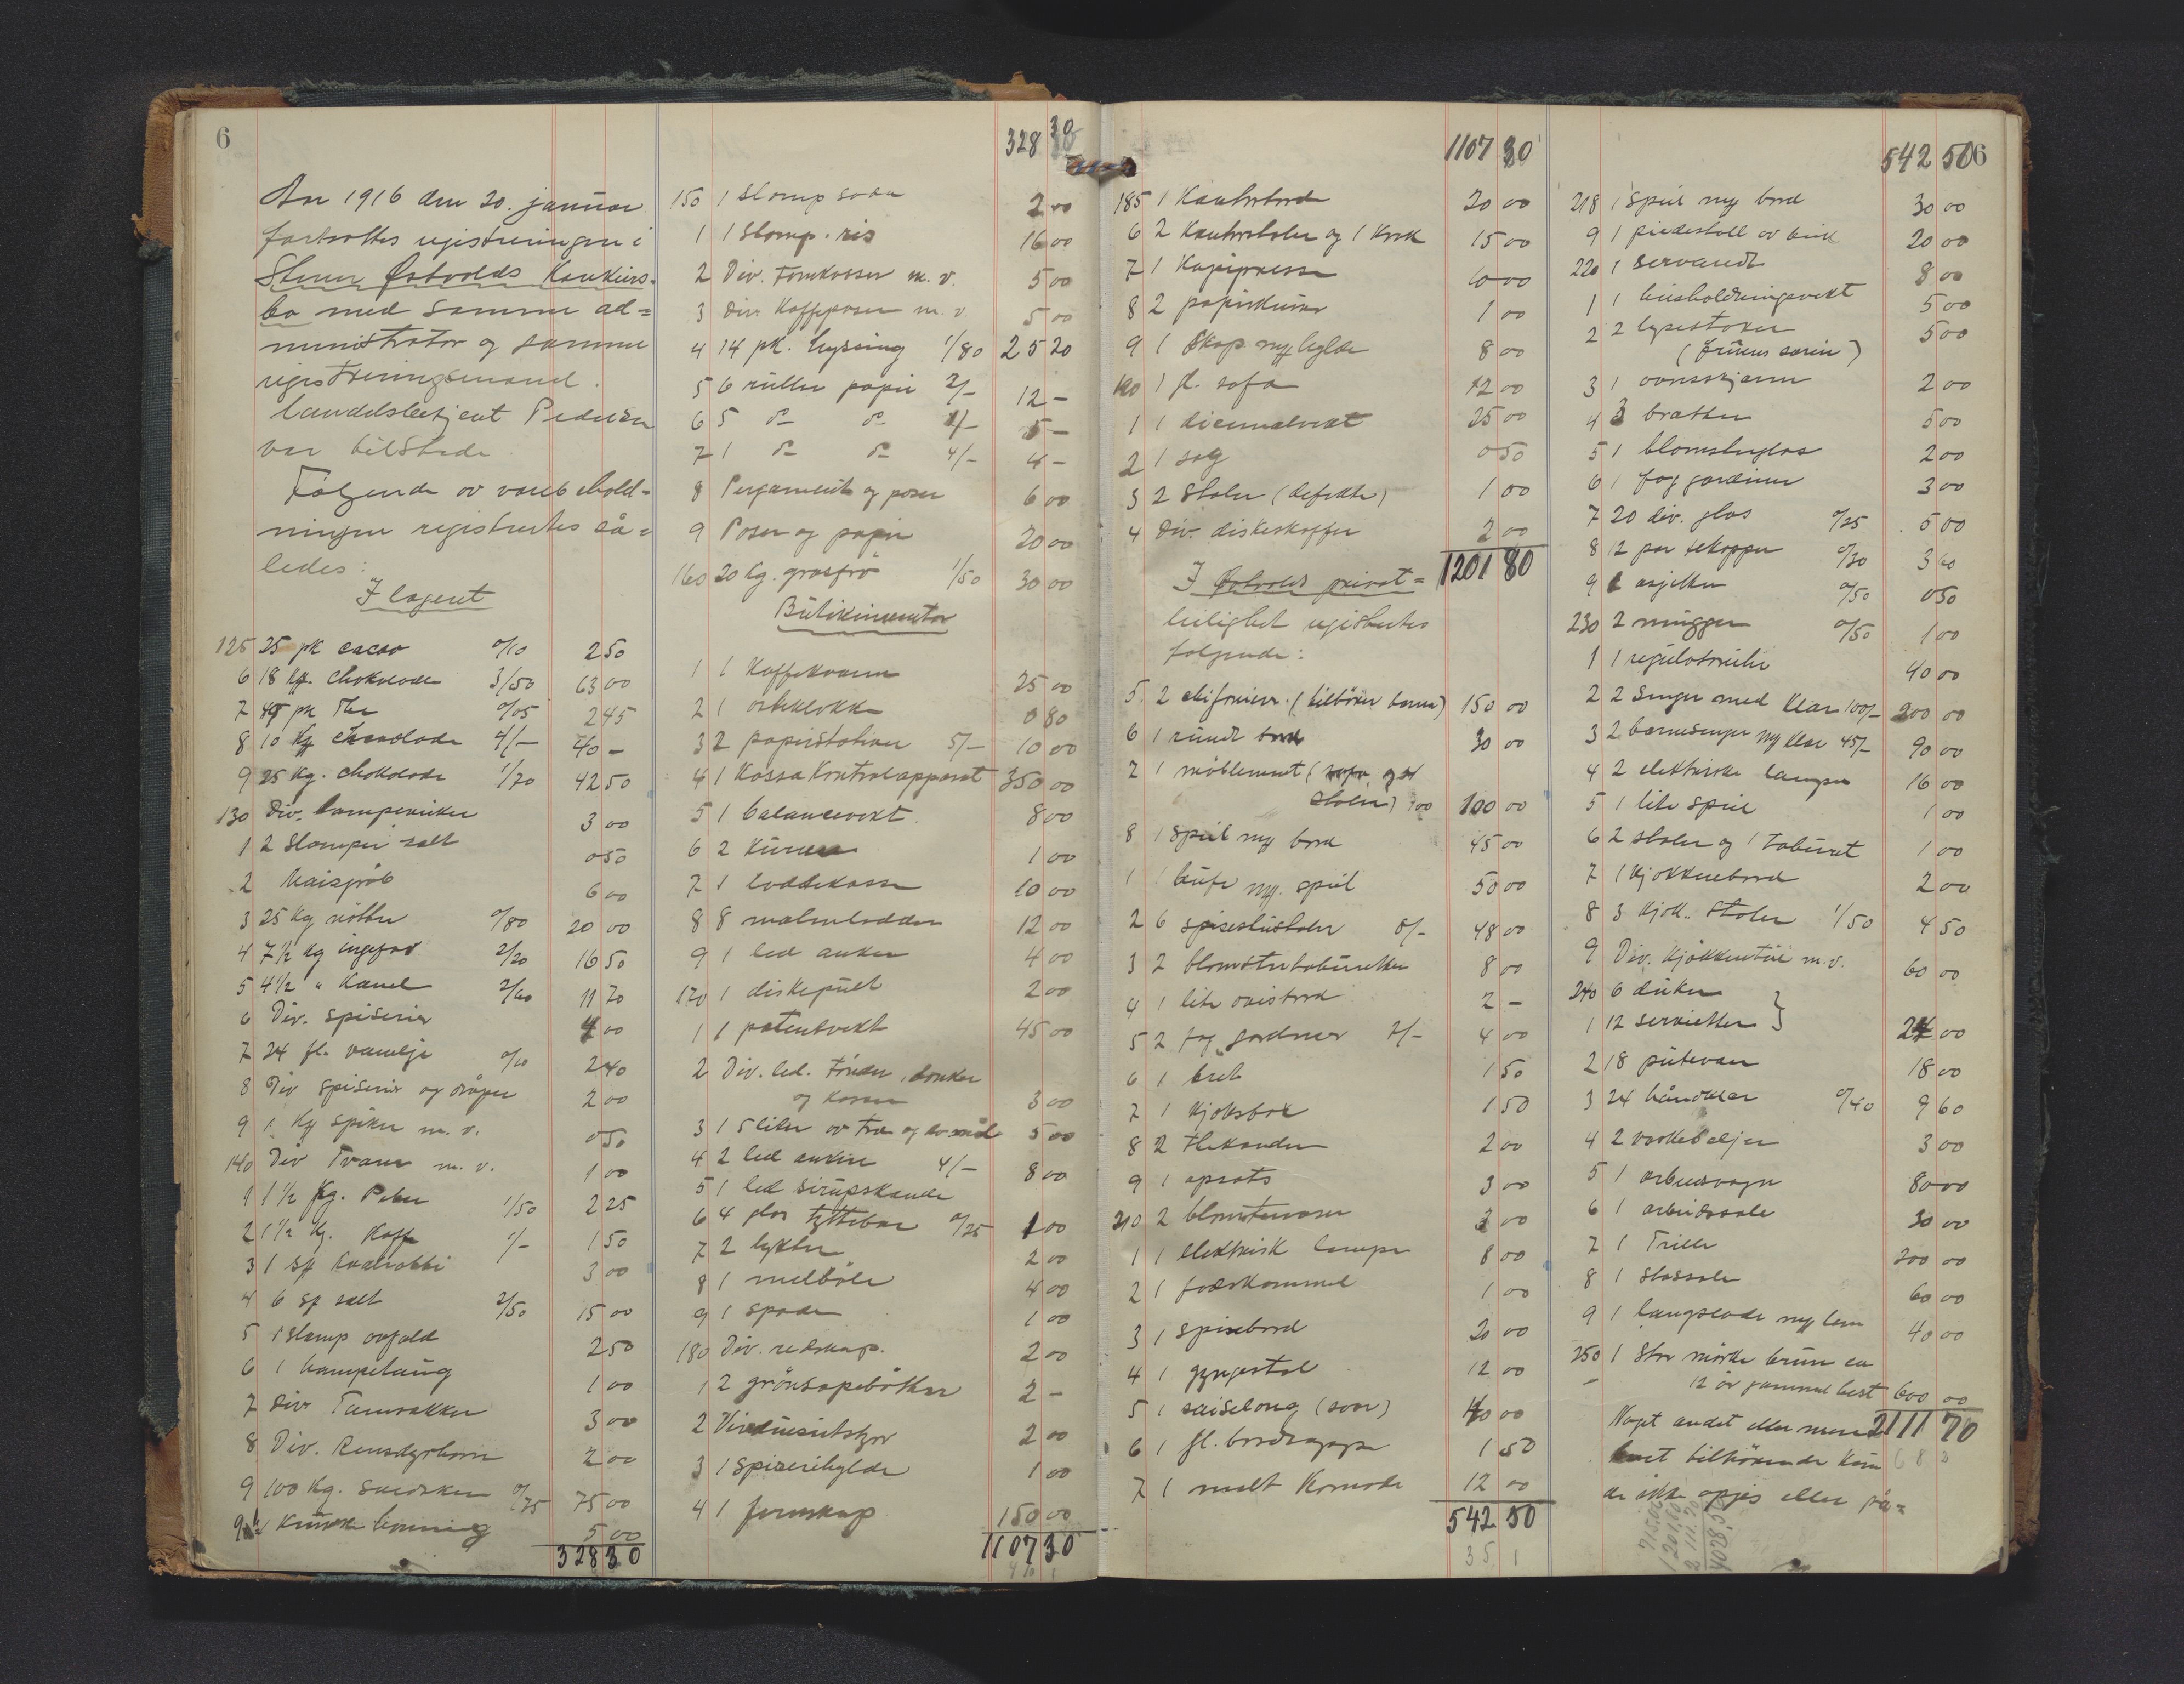 6
328 30
Aar 1916 den 20. januar
fortsattes registreringen i
Østvolds Konkurs-
bo med samme ad=
ministrator og samme
registreringsmand.
Landdsbetjent Pedersen
var tilstede
Følgende av varebehold=
ningen registrertes så=
ledes:
I lageret
125 25 pk cacao 0/10 2 50
6 18 kg. chokolade 3/50 63 00
7 49 pk The 0/05 2 45
8 10 kg chocolade 4/- 40 -
9 25 kg. chokolade 1/70 42 50
130 Div. lampeveker 3 00
1 2 Slumper salt 0 50
2 Maisgrøb 6 00
3 25 kg nötter 0/80 20 00
4 7½ kg ingefær 2/20 16 50
5 4½ " Kanel 2/60 11 70
6 Div. spiserier 4 00
7 24 fl. vanelje 0/10 2 40
8 Div spiserier og dråper 2 00
9 1 kg spiker m. v. 0 50
140 Div Traver m. v. 1 00
1 1½ kg. Peber 1/50 2 25
2 1½ kg. Kaffe 1/- 1 50
3 1 sk kaalrabbi 3 00
4 6 sk salt 2/50 15 00
5 1 slump avfald 2 50
6 1 hampetaug 1 00
7 Div Tamsakker 3 00
8 Div. Rensdyrhorn 2 00
9 100 kg. Svedsker 0/75 75 00
9b kunst honning 5 00
328 30
150 1 slump soda 2 00
1 1 Slump. ris 16 00
2 Div. Tomkasser m. v. 5 00
3 Div. Kaffeposer m. v 5 00
4 14 pk. hyssing 1/80 25 20
5 6 ruller papir 2/- 12 -
6 5 do do 1/- 5 -
7 1 do do 4/- 4 -
8 Pergament og poser 6 00
9 Poser og papir 20 00
160 20 kg. græsfrø 1/50 30 00
Butikinventar
1 1 Kaffekvern 25 00
2 1 osteklokke 0 80
3 2 papirstativer 5/- 10 00
4 1 Kassa Kontrolapparat 350 00
5 1 balancevekt 8 00
6 2 Kurver 1 00
7 1 loddekasse 10 00
8 8 malmlodder 12 00
9 1 led anker 4 00
170 1 diskepult 2 00
1 1 patentvekt 45 00
2 Div. led. Tönder, dunker
og kasser 3 00
3 1 5 liter av træ og 3 00
4 2 led ankere 4/- 8 00
5 1 led sirupskande
6 4 glas tyttebær 0/25 1 00
7 2 lykter 2 00
8 1 melböle 4 00
9 1 spade 1 00
180 Div. redskap. 2 00
1 2 grönsåpebötter 2 -
2 Vinduesutstyr 2 00
3 1 spiserihylde 1 00
4 1 jernskap 150 00
1107 30
1107 30
185 1 Kontorbord 20 00
6 2 Kontorstoler og 1 Krak 15 00
7 1 Kopipresse 10 00
8 2 papirkurver 1 00
9 1 skap mg hylde 8 00
190 1 gl. sofa 12 00
1 1 decimalvekt 25 00
2 1 sag 0 50
3 2 Stoler (defekte) 1 00
4 Div. diskeskuffer 2 00
1201 80
I Østvolds privat=
leilighet registrertes
følgende:
5 2 chifonierer. (tilhörer barna) 150 00
6 1 rundt bord 30 00
7 1 möblement (sofa og
stoler) 100 100 00
8 1 speil mg bord 45 00
1 1 bufe mg. speil 50 00
2 6 spisestustoler 8/- 48 00
3 2 blomstertaburetter 8 00
4 1 lite avisbord 2 -
5 2 fag gardiner 2/- 4 00
6 1 bret 1 50
7 1 Kjeksboks 1 50
8 2 thekander 2 00
9 1 opsats 3 00
210 2 blomstervaser 3 00
1 1 elektrisk lampe 8 00
2 1 1 00
3 1 spisebord 20 00
4 1 gyngestol 12 00
5 1 saiselong (svar) 40 00
6 1 gl. bordteppe 1 50
7 1 malt Komode 12 00
542 50
35 1
542 50 6
218 1 speil mg bord 30 00
9 1 piedestall av birk 20 00
220 1 servandt 8 00
1 1 husholdningsvekt 5 00
2 2 lysestaker 5 00
(fruens særeie)
3 1 ovnsskjerm 2 00
4 3 bratter 5 00
5 1 blomsterglas 2 00
6 1 fag gardiner 3 00
7 20 div. glas 0/25 5 00
8 12 par tekopper 0/30 3 60
9 1 asjetter 0/50 0 50
230 2 mugger 0/50 1 00
1 1 regulatorur 40 00
2 2 Senger med klær 100/- 200 00
3 2 barnesenger mg klær 45/- 90 00
4 2 elektriske lamper 16 00
5 1 lite speil 1 00
6 2 stoler og 1 taburet 1 00
7 1 kjökkenbord 2 00
8 3 kjök. stoler 1/50 4 50
9 Div. kjökkentöi m.v. 60 00
240 6 duker }
1 12 servietter } 24 00
2 18 putevar 18 00
3 24 håndklær 0/40 9 60
4 2 vaskebaljer 3 00
5 1 arbeidsvogn 80 00
6 1 arbeidssale 30 00
7 1 Trille 200 00
8 1 stassale 60 00
9 1 langslæde mg lem 40 00
250 1 Stor mörke brun ca
12 år gammel hest 600 00
2111 70
Noget andet eller mere
boet tilhörende kun
de ikke opgis eller på=
683
715,00
1201,80
2111,70
4028,50